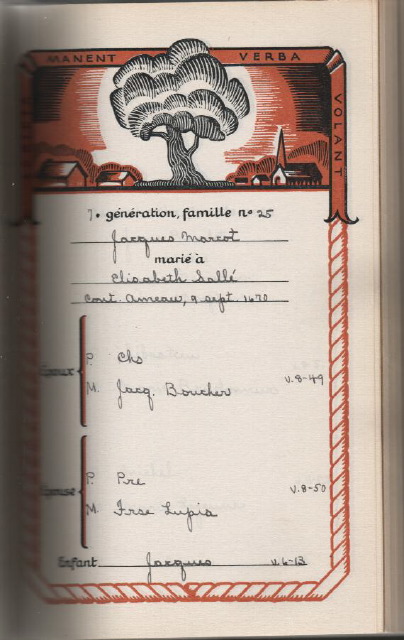 MANENT VERBA VOLANT
7e génération, famille nº 25
Jacques Marcot
marié à
Elisabeth Sallé
Cont. Ameau, 9 sept. 1670
Epoux
P. Chs
M. Jacq. Boucher v.8-49
Epouse
P. Pre
M. Frse Lupia v.8-50
Enfant Jacques v.6-13